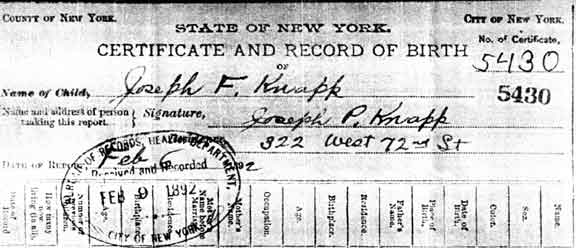 COUNTY OF NEW YORK.
CITY OF NEW YORK.
STATE OF NEW YORK.
No. of Certificate,
CERTIFICATE AND RECORD OF BIRTH
5430
OF
Name of Child, Joseph F. Knapp
5430
Name and address of person making this report. } Signature, Joseph P. Knapp
322 West 72nd St
DATE OF REPORT, Feb 6 92
BUREAU OF RECORDS, HEALTH DEPARTMENT,
Received and Recorded
FEB 9 1892
CITY OF NEW YORK
Number of
Age.
Birthplace.
Residence.
Mother's Name before Marriage.
Mother's Name.
Occupation.
Age.
Birthplace.
Residence.
Father's Name.
Place of Birth.
Date of Birth.
Color.
Sex.
Name.